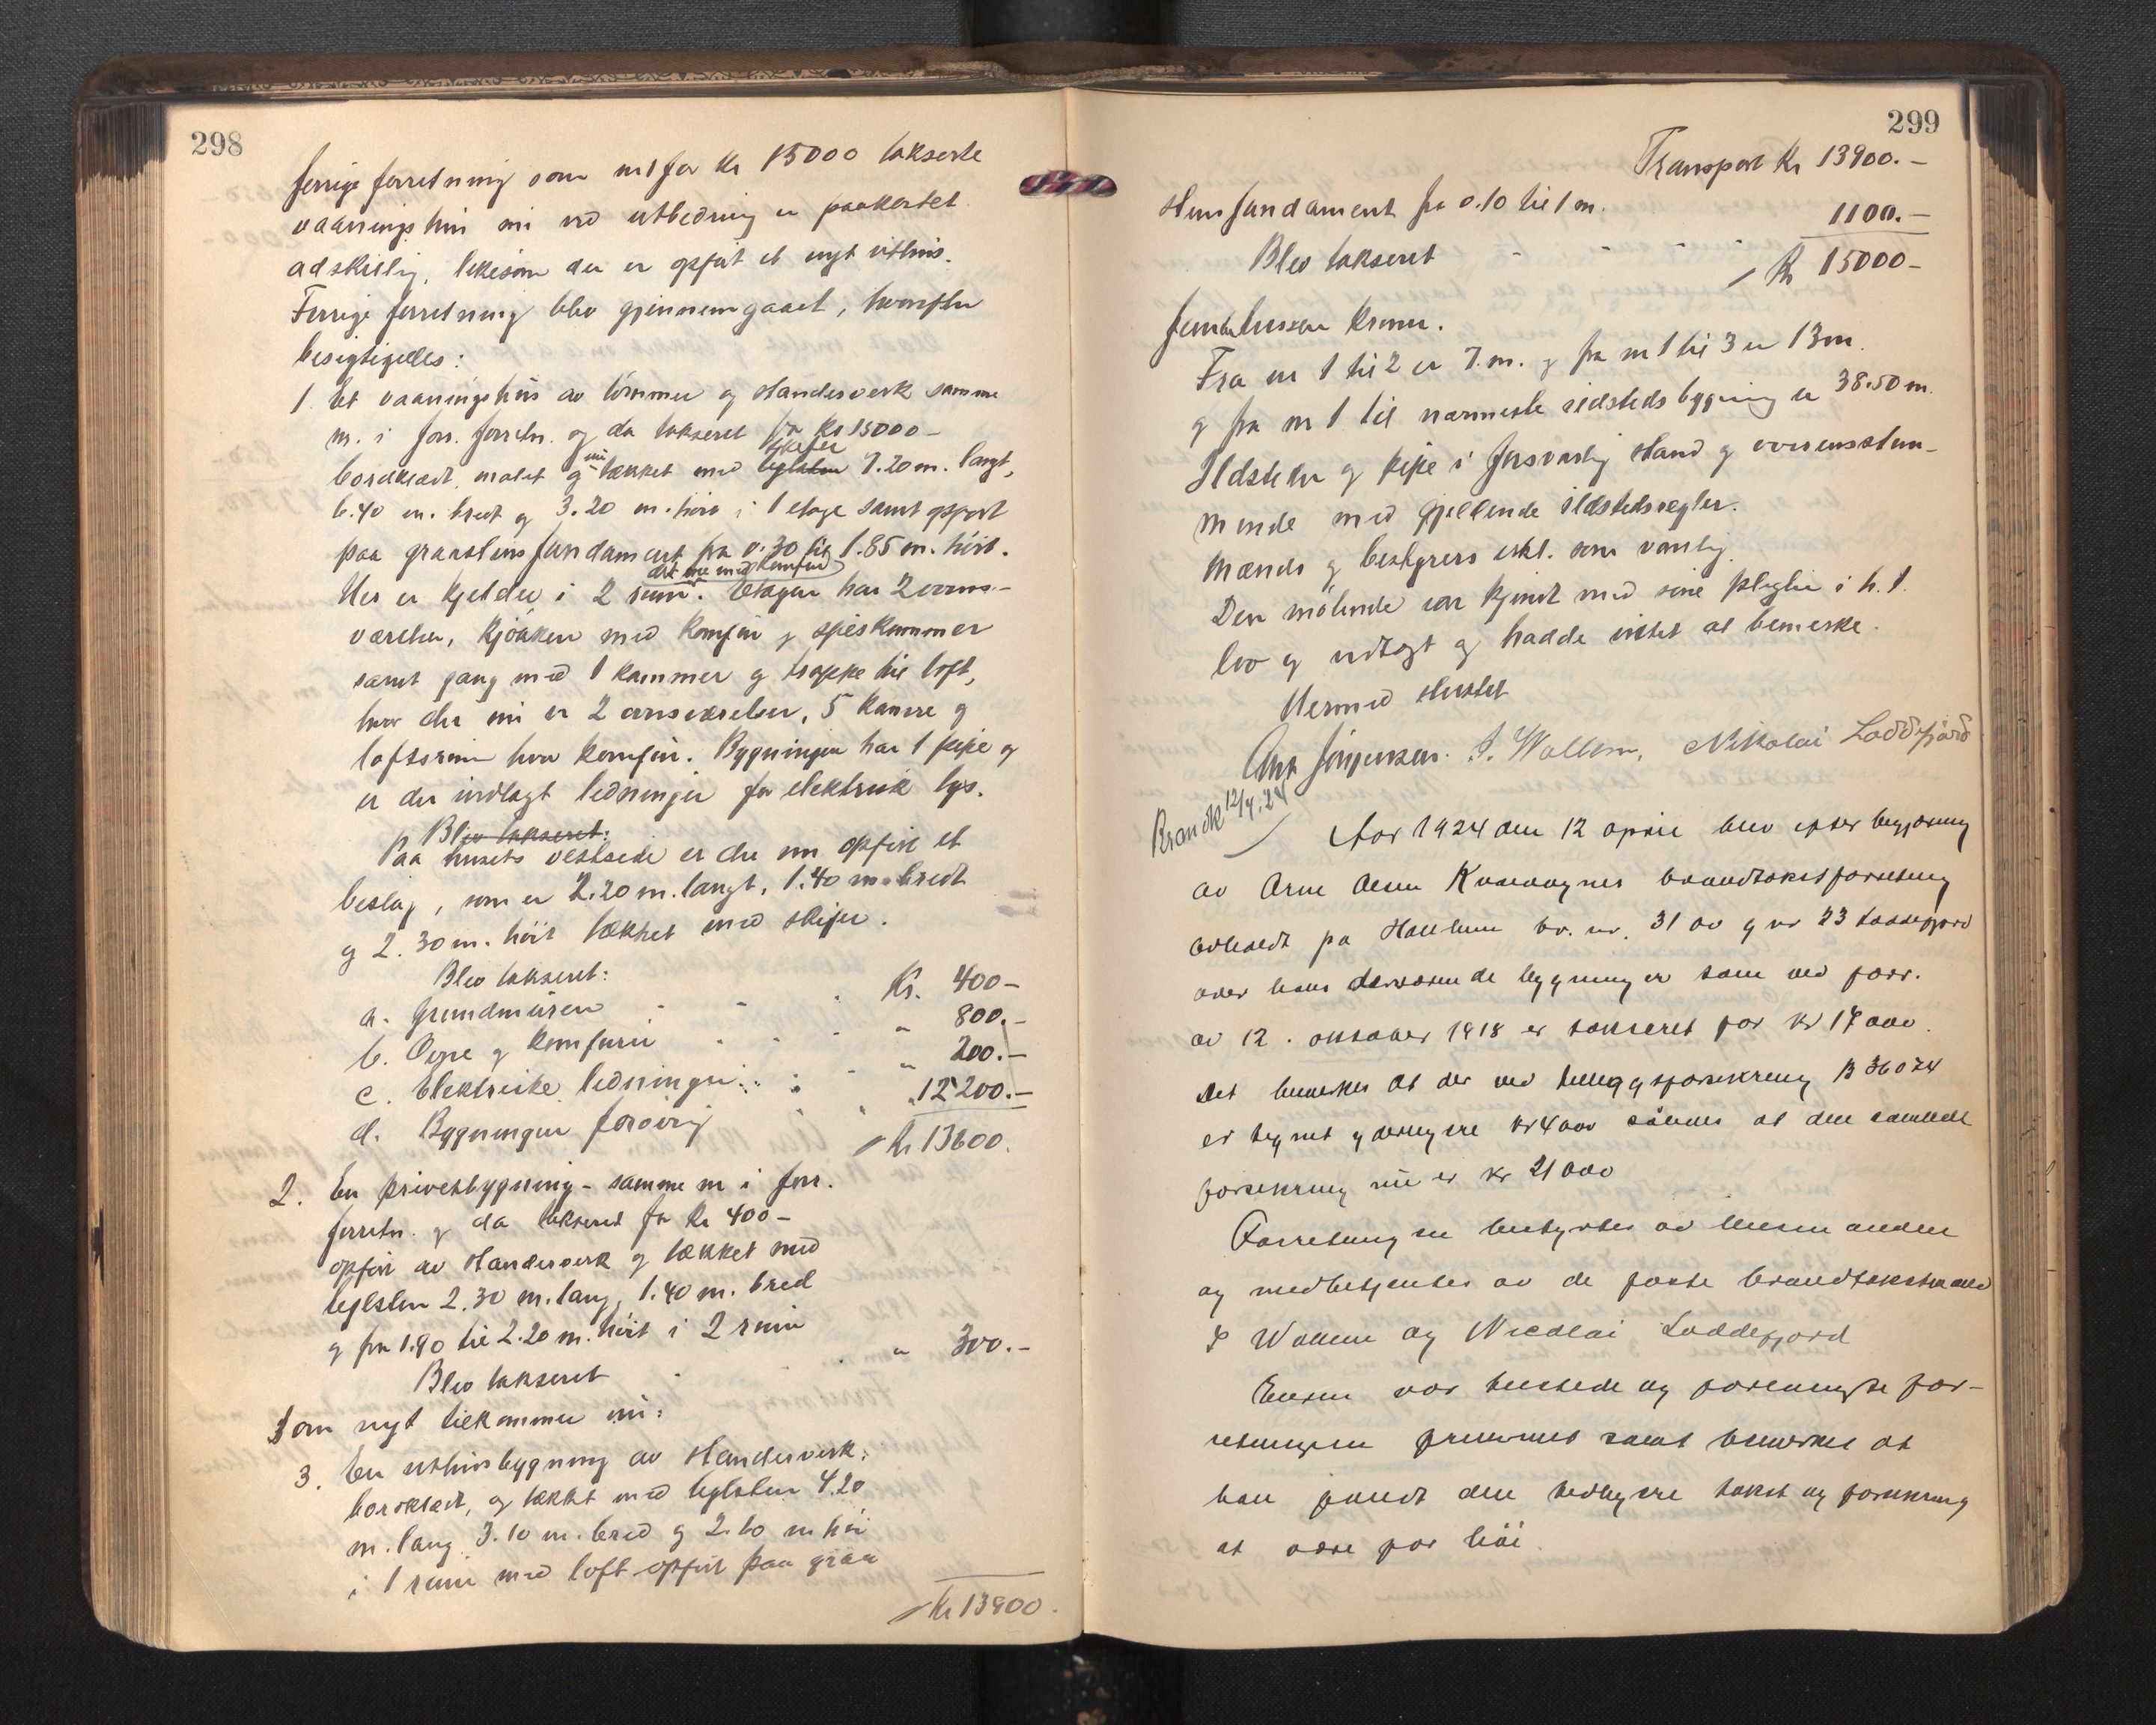 298
forrige forretning som nr 1 for kr 15000 takserte
vaaningshus nu ved utbedring er paakostet
adskillig, likesom der er opført et nyt uthus.
Forrige forretning blev gjennemgaaet, hvorefter
besigtigedes:
1. Et vaaningshus av tømmer og standerverk samme
nr. i forr. forretn. og da taksert for kr 15000-
skifer
bordklædt, malet og nu tækket med teglsten 7.20 m. langt,
6.40 m. bredt og 3.20 m. høit i 1 etage samt opført
paa graastensfundament fra 0.30 til 1.85 m. høit.
det ene med komfur
Her er kjelder i 2 rum. Etagen har 2 værelser, kjøkken med komfur og spiskammer
samt gang med 1 kammer og trappe til loft,
hvor der nu er 2 ovnsværelser, 5 kamre og
loftsrum hvor komfur. Bygningen har 1 pipe og
er der indlagt ledninger for elektrisk lys.
Blev taksert:
Paa husets vestside er der nu opført et
beslag, som er 2.20 m. langt, 1.40 m. bredt
og 2.30 m. høit tækket med skifer.
Blev taksert:
a. Grundmuren Kr. 400-
b. Ovne og komfurer " 800.-
c. Elektriske ledninger " 200.-
d. Bygningen forøvrig " 12200.-
Kr 13600.
2. En privetbygning - samme nr i forr.
forretn. og da taksert for kr 400-
opført av standerverk og tækket med
teglsten 2.30 m. lang, 1.40 m. bred
og fra 1.90 til 2.20 m. høit i 2 rum
Blev taksert " 300.-
Som nyt tilkommer nu:
3. En uthusbygning av standerverk,
bordklædt, og tækket med teglsten 4.20
m. lang 3.10 m. bred og 2.60 m høi
i 1 rum med loft opført paa graa
Kr 13900.
299
Transport Kr 13900.-
stensfundament fra 0.10 til 1 m. 1100.-
Blev taksert Kr 15000-
femten tusen kroner.
Fra nr 1 til 2 er 7. m. og fra nr 1 til 3 er 13 m.
og fra nr 1 til nærmeste ildstedsbygning er 38.50 m.
Ildsteder og pipe i forsvarlig stand og overensstem-
mende med gjeldende ildstedsregler.
Mænds og bestyrers erkl. som vanlig.
Den møtende var kjendt med sine pligter i h. t.
lov og vedtægt og hadde intet at bemerke.
Hermed sluttet
Ant Jørgensen. I. Wallem, Nikolai Loddefjord
Brandk 12/4.24
Aar 1924 den 12 april blev efter begjæring
av Arne Olsen Kvaavagnes brandtakstforretning
avholdt på br. nr. 31 av g nr 23 Loddefjord
over hans derværende bygninger som ved forr.
av 12. oktober 1918 er taksert for kr 17000.
Det bemerkes at der ved tillægsforsikring B 36074
er tegnet yderligere kr 4000 således at den samlede
forsikring nu er kr 21000
Forretningen bestyrtes av lensmanden
og medbetjentes av de faste brandtakstmænd
I Wallem og Nicolai Loddefjord
Eieren var tilstede og forlangte for-
retningen fremmet samt bemerket at
han fandt den tidligere takst og forsikring
at være for høi.